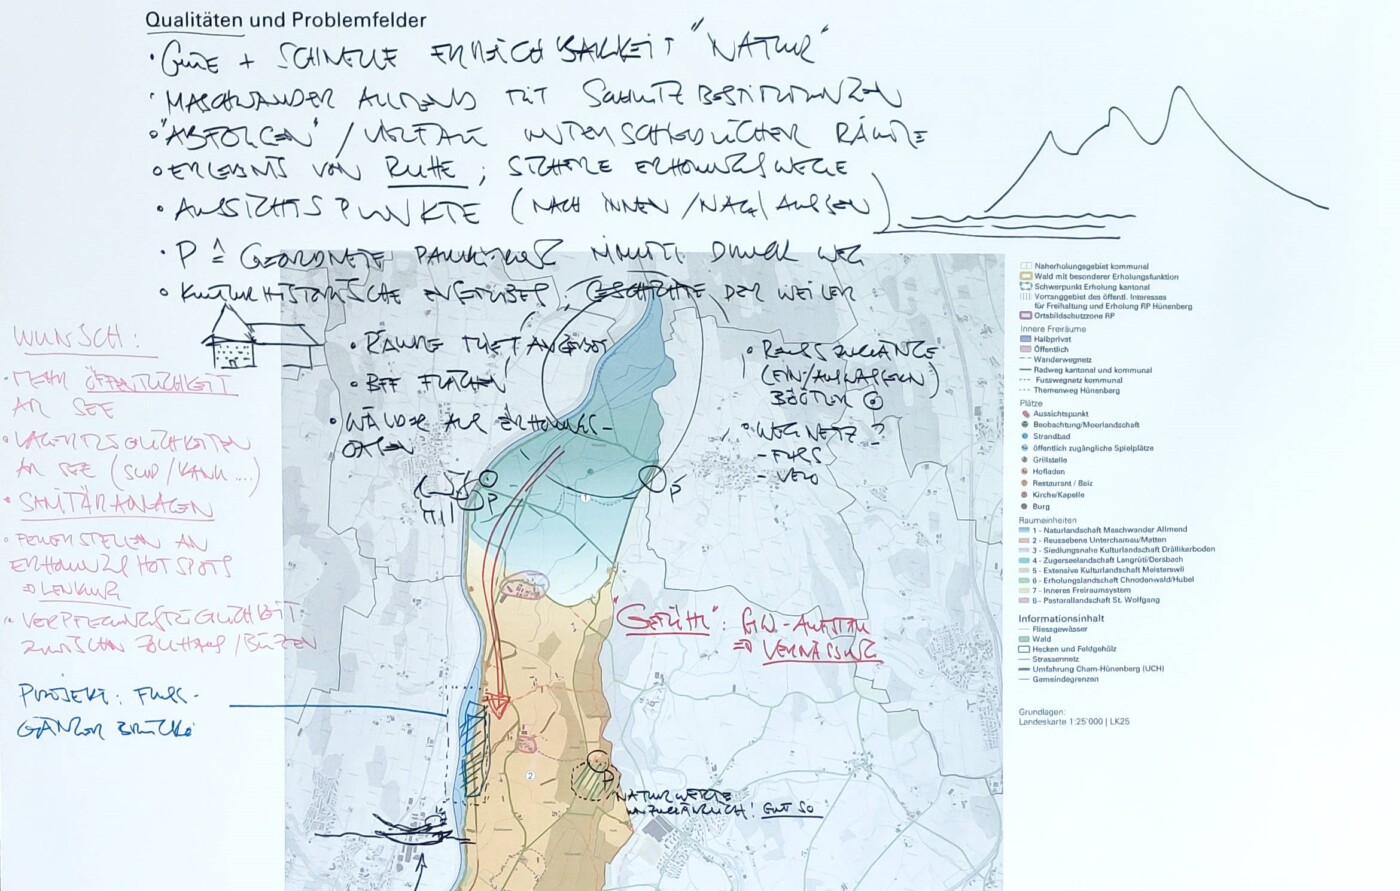 Qualitäten und Problemfelder
• GUTE + SCHNELLE ERREICHBARKEIT "NATUR"
• MASCHWANDER ALLMEND MIT SCHUTZBESTIMMUNZEN
• "ABFOLGEN" / VIELFALT UNTERSCHIEDLICHER RÄUME
• ERLEBNIS VON RUHE ; SICHERE ERHOLUNGSWEGE
• AUSSICHTSPUNKTE (NACH INNEN / NACH AUSSEN)
• P ≙ GEORDNETE DRUCK WEG
• KULTURHISTORISCHE GESCHICHTE DER WEILER
• RÄUME ANGEBOT
• BFF FLÄCHEN
• WÄLDER ALS ERHOLUNGS-
ORTEN
• REUSSZUGÄNGE
(EIN/AUSWASSERN)
BÖÖTLER
• WEGNETZ ?
- FUSS
- VELO
WUNSCH :
• MEHR ÖFFENTLICHKEIT
AM SEE
AM SEE (SUP/KANU ...)
• SANITÄRANLAGEN
• FEUERSTELLEN AN
ERHOLUNGS HOTSPOTS
⇒ LENKUNG
• VERPFLEGUNGSMÖGLICHKEIT
ZWISCHEN ZOLLHAUS/
PROJEKT: FUSS-
GÄNGER BRÜCKE
P
P
"GEFÜHL": GW.-AUFSTAU
⇒ VERNÄSSUNG
1
2
P
NATURWERTE
UNZUGÄNGLICH! GUT SO
Naherholungsgebiet kommunal
Wald mit besonderer Erholungsfunktion
Schwerpunkt Erholung kantonal
Vorranggebiet des öffentl. Interesses
für Freihaltung und Erholung RP Hünenberg
Ortsbildschutzzone RP
Innere Freiräume
Halbprivat
Öffentlich
Wanderwegnetz
Radweg kantonal und kommunal
Fusswegnetz kommunal
Themenweg Hünenberg
Plätze
Aussichtspunkt
Beobachtung/Moorlandschaft
Strandbad
öffentlich zugängliche Spielplätze
Grillstelle
Hofladen
Restaurant / Beiz
Kirche/Kapelle
Burg
Raumeinheiten
1 - Naturlandschaft Maschwander Allmend
2 - Reussebene Unterchamau/Matten
3 - Siedlungsnahe Kulturlandschaft Drällikerboden
4 - Zugerseelandschaft Langrüti/Dersbach
5 - Extensive Kulturlandschaft Meisterswil
6 - Erholungslandschaft Chnodenwald/Hubel
7 - Inneres Freiraumsystem
8 - Pastorallandschaft St. Wolfgang
Informationsinhalt
Fliessgewässer
Wald
Hecken und Feldgehölz
Strassennetz
Umfahrung Cham-Hünenberg (UCH)
Gemeindegrenzen
Grundlagen:
Landeskarte 1:25'000 | LK25